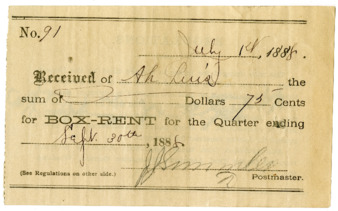 No. 91
July 1st, 1888.
Received of Ah Luis the
sum of Dollars 75 Cents
for BOX-RENT for the Quarter ending
Sept. 30th, 1888
(See Regulations on other side.) Postmaster.